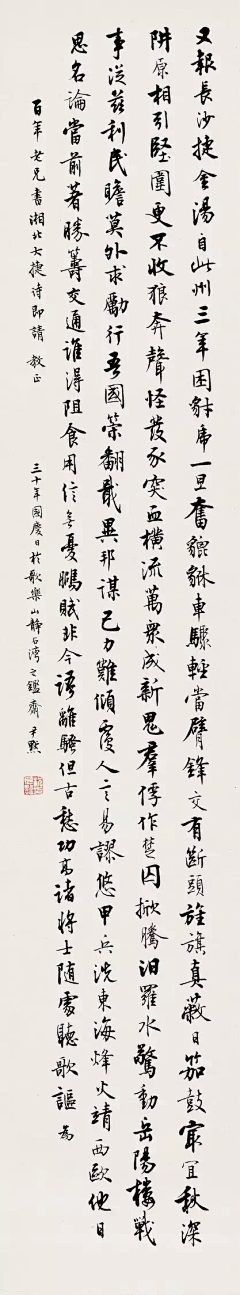 又報長沙捷金湯自此州三年困豺虎一旦奮貔貅車驟輕當臂鋒交有斷頭旌旗真蔽日笳鼓最宜秋深
阱原相引堅圍更不收狼奔聲怪發豕突血橫流萬衆成新鬼羣俘作楚囚掀騰汨羅水驚動岳陽樓戰
事從茲利民瞻莫外求勵行吾國策翻戢異邦謀己力難傾覆人言易謬悠甲兵洗東海烽火靖西歐他日
思名論當前著勝籌交通誰得阻食用信無憂鵩賦非今語離騷但古愁功高諸將士隨處聽歌謳 爲
百年老兄書湘北大捷詩即請 教正
三十年國慶日於歌樂山靜石灣之鑑齋 尹默